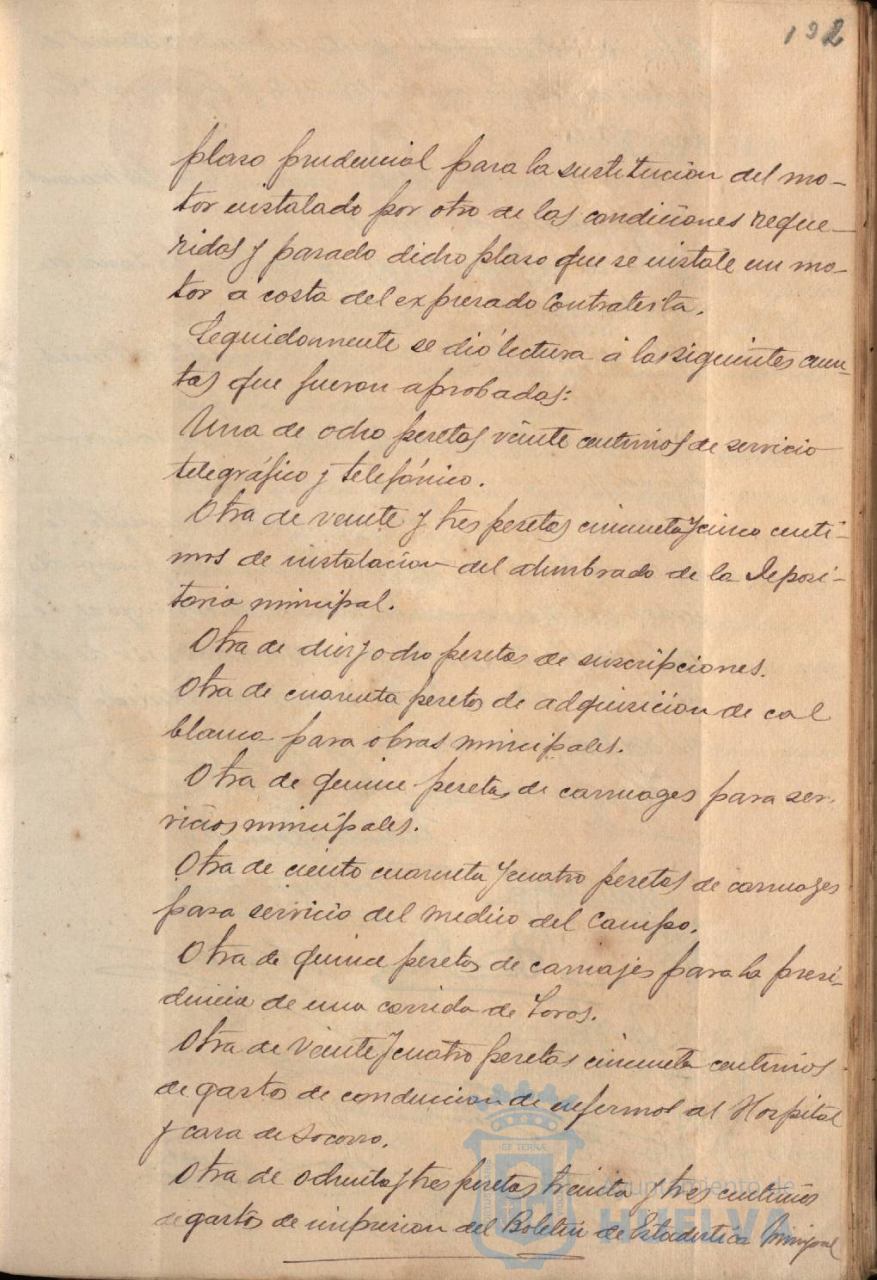 192
plaso prudencial para la sustitución del mo-
tor instalado por otro de las condiciones reque-
ridas y pasado dicho plaso que se instale un mo-
tor a costa del expresado Contratista.
Seguidamente se dió lectura á las siguientes cuen-
tas que fueron aprobadas:
Una de ocho pesetas veinte centimos de servicio
telegráfico y telefónico.
Otra de veinte y tres pesetas cincuenta y cinco centi-
mos de instalacion del alumbrado de la Deposi-
taria municipal.
Otra de diez y ocho pesetas de suscripciones.
Otra de cuarenta pesetas de adquisicion de cal
blanca para obras municipales.
Otra de quince pesetas de carruages para ser-
vicios municipales.
Otra de ciento cuarenta y cuatro pesetas de carruages
para servicio del medico del Campo.
Otra de quince pesetas de carruajes para la presi-
dencia de una corrida de Toros.
Otra de veinte y cuatro pesetas cincuenta centimos
de gastos de conduccion de enfermos al Hospital
y casa de Socorro.
Otra de ochenta y tres pesetas treinta y tres centimos
de gastos de impresion del Boletin de Estadistica Municipal
Ayuntamiento de
HUELVA